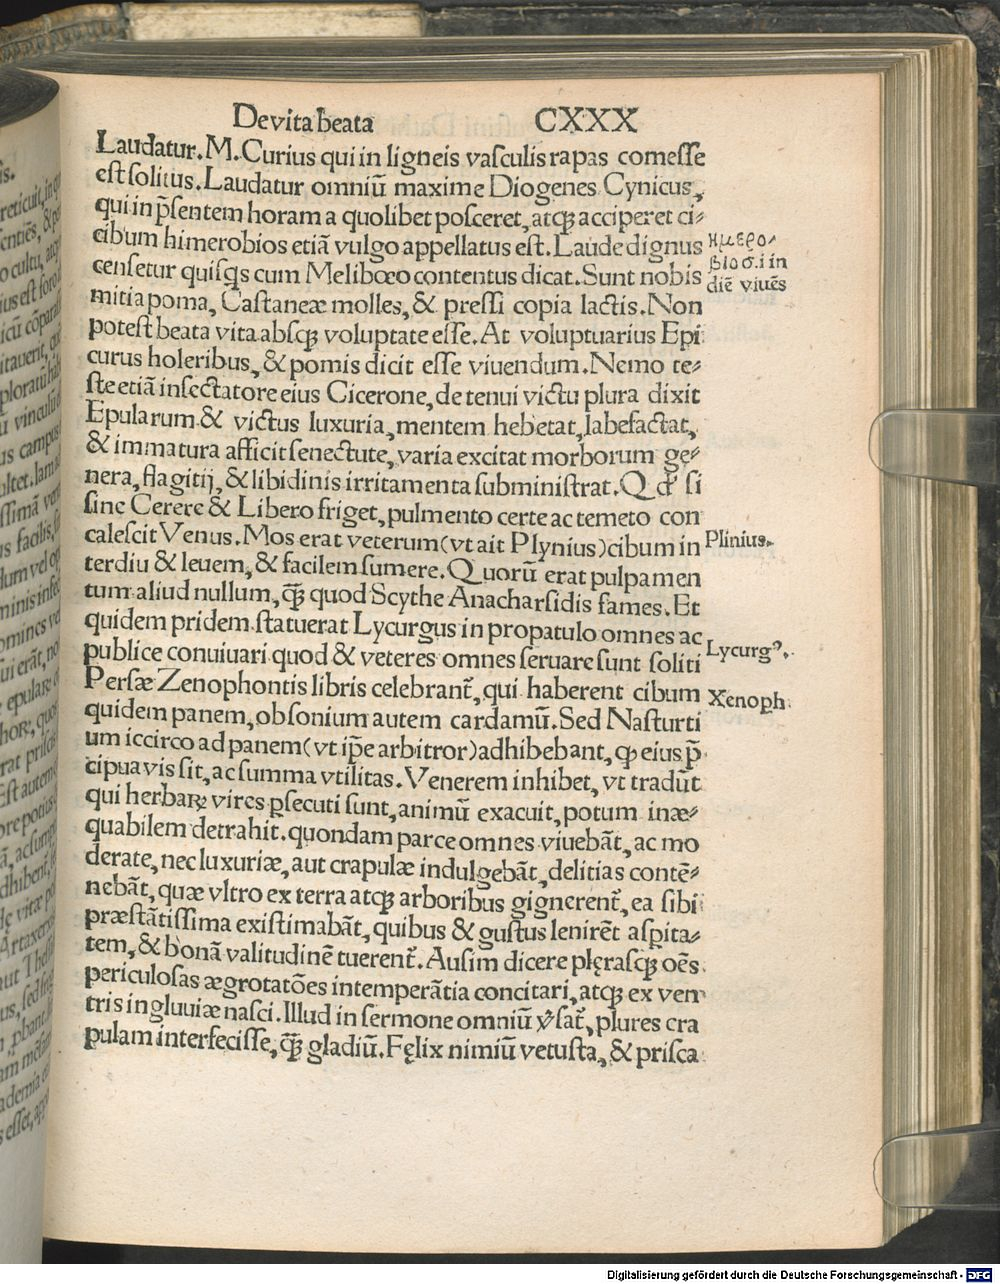 De vita beata CXXX
Laudatur. M. Curius qui in ligneis vasculis rapas comesse
est solitus. Laudatur omniū maxime Diogenes Cynicus,
qui in p̄sentem horam a quolibet posceret, atqꝫ acciperet ci⸗
cibum himerobios etiā vulgo appellatus est. Laude dignus
censetur quisqs cum Meliboeo contentus dicat. Sunt nobis
mitia poma, Castaneæ molles, & pressi copia lactis. Non
potest beata vita absqꝫ voluptate esse. At voluptuarius Epi
curus holeribus, & pomis dicit esse viuendum. Nemo te⸗
ste etiā insectatore eius Cicerone, de tenui victu plura dixit
Epularum & victus luxuria, mentem hebetat, labefactat,
& immatura afficit senectute, varia excitat morborum gę⸗
nera, flagitij, & libidinis irritamenta subministrat. si
sine Cerere & Libero friget, pulmento certe ac temeto con
calescit Venus. Mos erat veterum (vt ait Plynius) cibum in
terdiu & leuem, & facilem sumere. Quorū erat pulpamen
tum aliud nullum, qꝫ̄ quod Scythe Anacharsidis fames. Et
quidem pridem statuerat Lycurgus in propatulo omnes ac
publice conuiuari quod & veteres omnes seruare sunt soliti
Persæ Zenophontis libris celebrant̄, qui haberent cibum
quidem panem, obsonium autem cardamū. Sed Nasturti
um iccirco ad panem (vt ip̄e arbitror) adhibebant, qꝫ eius p̄
cipua vis sit, ac summa vtilitas. Venerem inhibet, vt tradūt
qui herbaꝝ vires ꝑsecuti sunt, animū exacuit, potum inæ⸗
quabilem detrahit. quondam parce omnes viuebāt, ac mo
derate, nec luxuriæ, aut crapulæ indulgebāt, delitias contē⸗
nebāt, quæ vltro ex terra atqꝫ arboribus gignerent̄, ea sibi
præstātissima existimabāt, quibus & gustus lenirēt aspita⸗
tem, & bonā valitudinē tuerent̄. Ausim dicere plęrasqꝫ oēs
periculosas ægrotatōes intemperātia concitari, atqꝫ ex ven
tris ingluuiæ nasci. Illud in sermone omniū plures cra
pulam interfecisse, qꝫ̄ gladiū. Fęlix nimiū vetusta, & prisca
ημερο⸗
βιοσ. i in
diē viuēs
Plinius.
Lycurgꝰ.
Xenoph
Digitalisierung gefördert durch die Deutsche Forschungsgemeinschaft - DFG